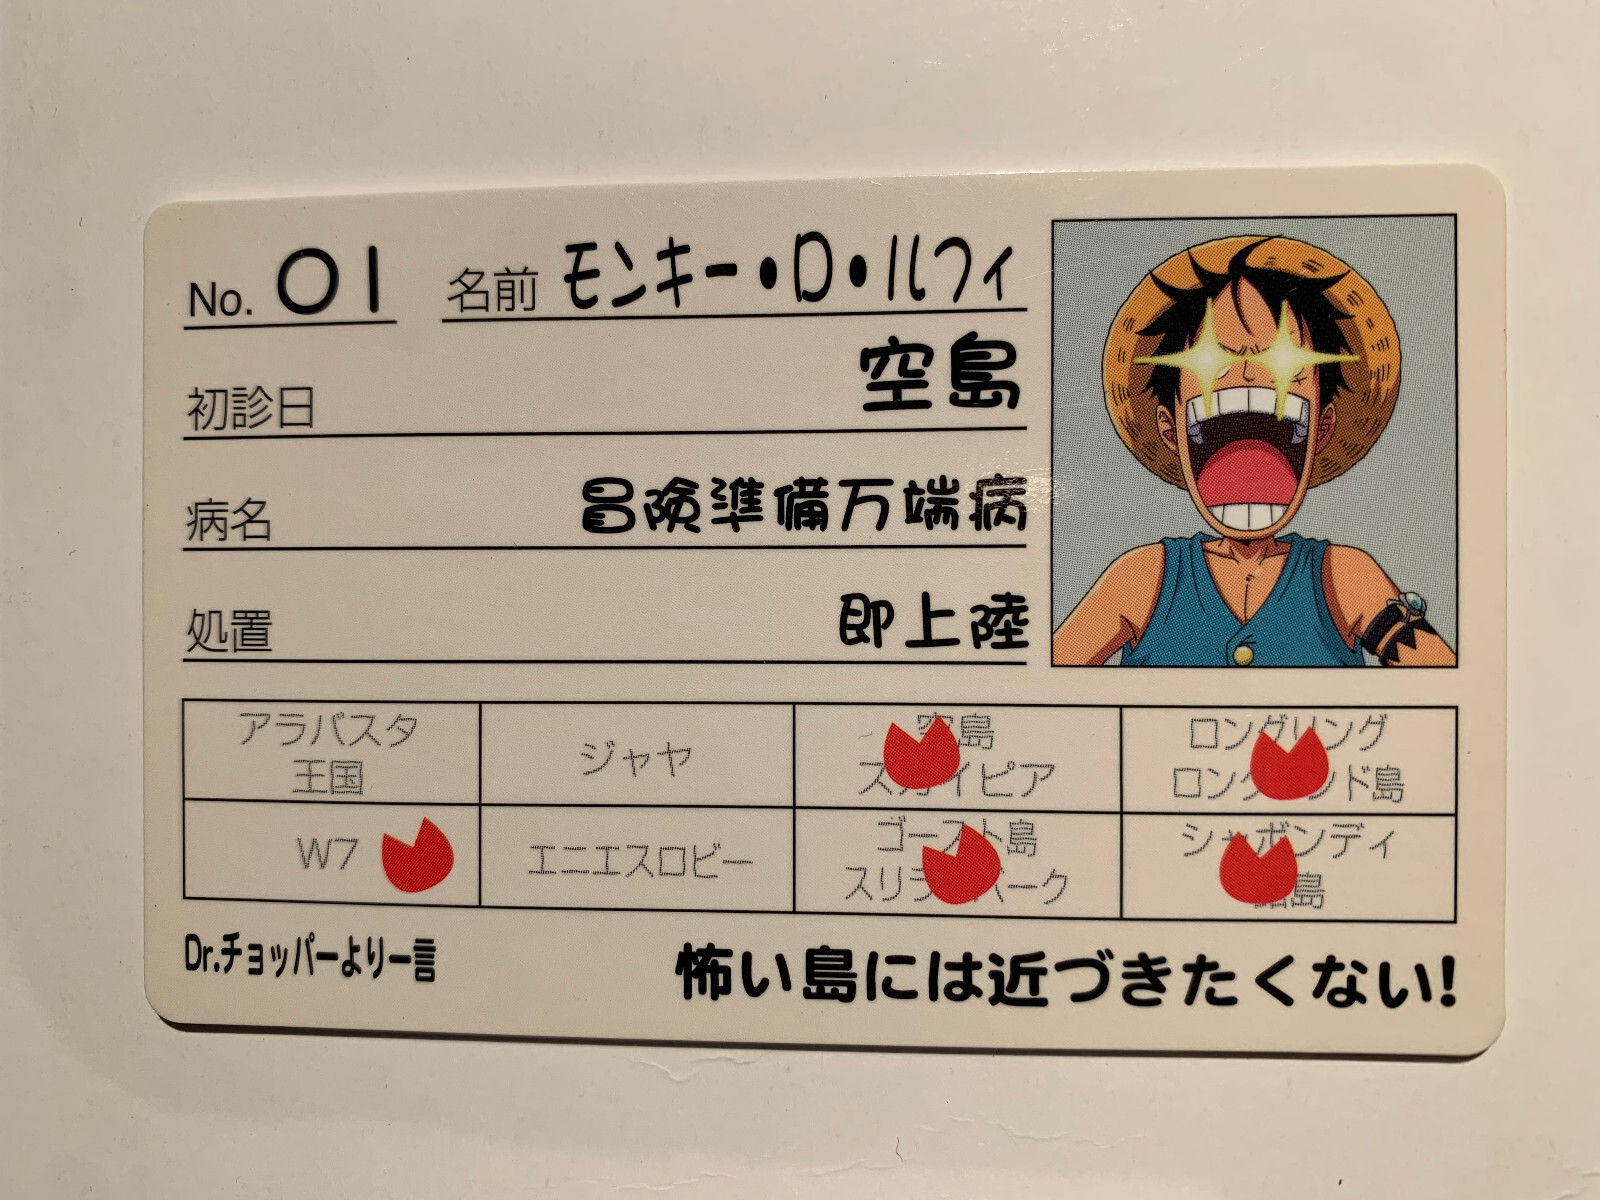 No. 01 名前 モンキー・D・ルフィ
初診日 空島
病名 冒険準備万端病
処置 即上陸
アラバスタ
王国
ジャヤ
空島
スカイピア
ロングリング
ロングランド島
W7
エニエスロビー
ゴースト島
スリラーバーク
シャボンディ
諸島
Dr.チョッパーより一言 怖い島には近づきたくない!